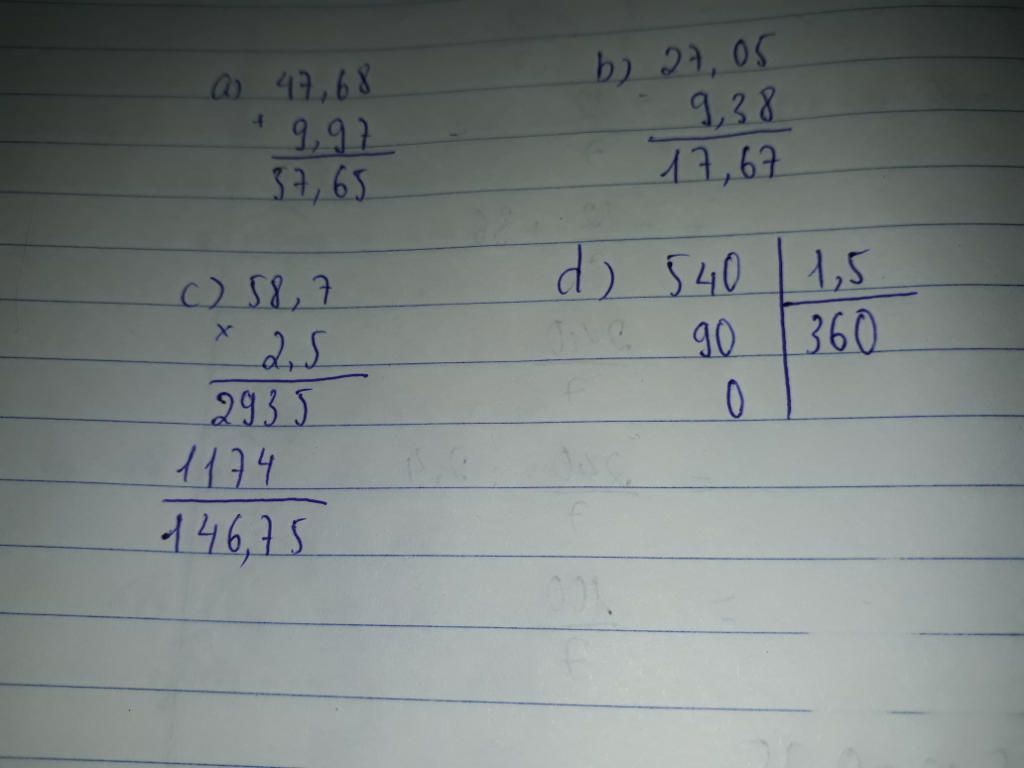 a) 47,68
+ 9,97
57,65
b) 27,05
- 9,38
17,67
c) 58,7
x 2,5
2935
1174
146,75
d) 540 1,5
90 360
0